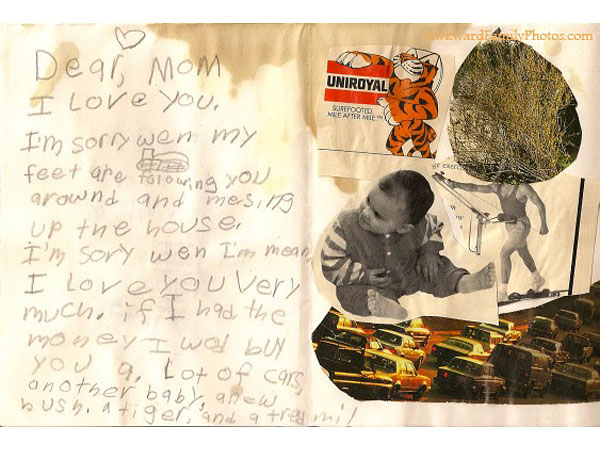 AwkwardFamilyPhotos.com
Dear, MOM
I Love you.
I'm sorry wen my
feet are folowing you
arownd and mesing
up the house.
I'm sory wen I'm mean
I Love you very
much. if I had the
money I wod buy
you a. Lot of cars,
another baby, a new
bush. a tiger, and a tredmil
UNIROYAL
SUREFOOTED
MILE AFTER MILE.™